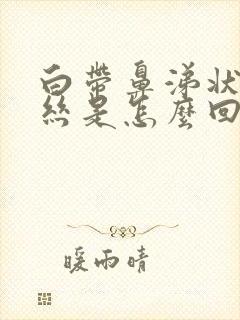 白帶鼻涕狀
絲是怎麼回
暖雨晴